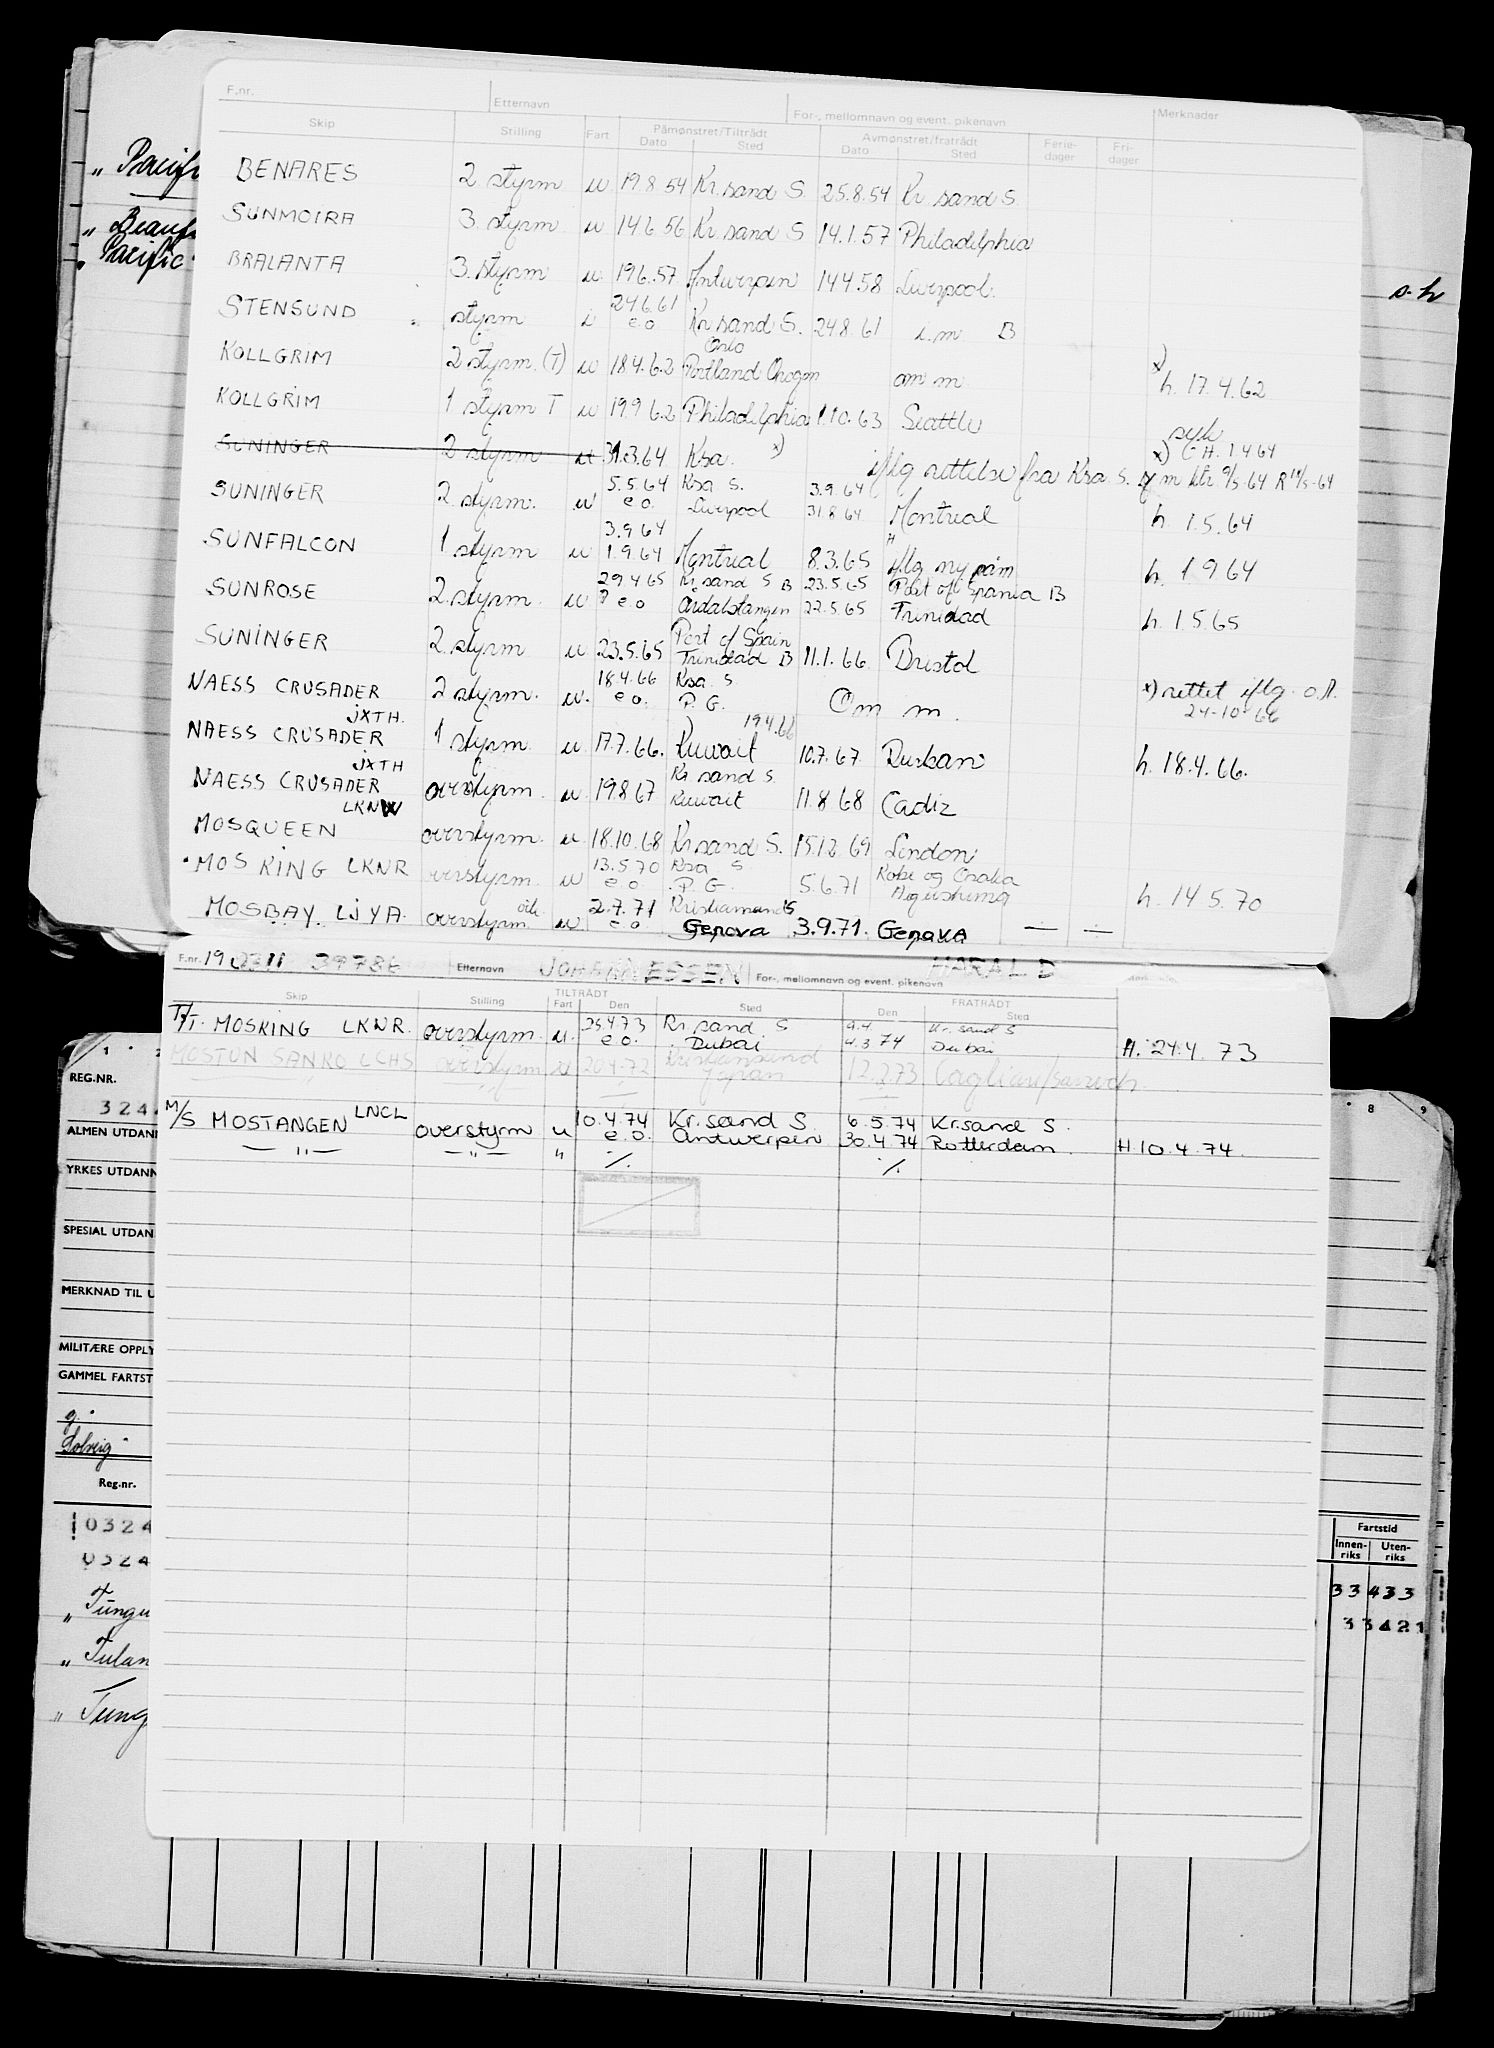 F.nr. Etternavn For-, mellomnavn og event. pikenavn Merknader
Skip Stilling Fart Påmønstret/Tiltrådt Avmønstret/fratrådt Ferie- Fri-
Dato Sted Dato Sted dager dager
BENARES 2 styrm u 19.8 54 Kr. sand S. 25.8.54 Kr sand S.
SUNMOIRA 3. styrm u 14.6 56 Kr sand S 14.1.57 Philadelphia
BRALANTA 3. styrm u 19.6.57 Antwerpen 14.4.58 Liverpool.
24.6.61
STENSUND styrm i e.o. Kr sand S. 24.8.61 i.m B
Oslo
KOLLGRIM 2 styrm. (T) u 18.4.62 Portland Oregon om m x) h. 17.4.62
KOLLGRIM 1 styrm T u 19.9 62 Philadelphia 1.10.63 Seattle syk
SUNINGER 2 styrm ut 31.3.64 Ksa. x) iflg rettelse fra Ksa s. x)
5.5.64 Ksa S. 3.9.64
SUNINGER 2. styrm. u e.o. Liverpool 31.8.64 Montreal h. 1.5.64
3.9.64
SUNFALCON 1 styrm u 1.9.64 Montreal 8.3.65 iflg ny påm h. 1 9 64
29.4.65 Kr. sand S B 23.5.65 Port of Spania B
SUNROSE 2. styrm. u e.o Årdalstangen 22.5.65 Trinidad h. 1.5.65
Port of Spain
SUNINGER 2. styrm u 23.5.65 Trinidad B 11.1.66. Bristol
18.4.66 Ksa. S.
NAESS CRUSADER 2 styrm. u. e.o. P.G. Om m. x) rettet iflg. o.A.
JXTH. 19 4.66 24-10-66
NAESS CRUSADER 1 styrm. u. 17.7.66. Kuwait 10.7.67 Durban h. 18.4.66.
JXTH Kr. sand S.
NAESS CRUSADER overstyrm. u. 19.8 67 Kuwait 11.8 68 Cadiz
LKNW
MOSQUEEN overstyrm. u. 18.10.68 Kr.sand S. 15.12 69 London
13.5.70 Ksa S Kobe og Osaka
MOS KING LKNR overstyrm. u e.o. P.G. 5.6.71 h. 14 5.70
2.7.71 Kristiansand S
MOSBAY LJYA. overstyrm. u e.o Genova 3.9.71. Genova — —
F.nr. 19 0311 39786 Etternavn JOHANNESSEN For-, mellomnavn og event. pikenavn HARALD
Skip Stilling TILTRÅDT FRATRÅDT
Fart Den Sted Den Sted
25.4.73 Kr. sand S 9.4. Kr. sand S
T/T. MOSKING LKNR. overstyrm. u. e.o. Dubai 4.3 74 Dubai H. 24.4. 73
MOSTUN SANKO LCHS overstyrm u 20.4.72 Kristiansund Japan 12.2.73 Cagliari/
M/S MOSTANGEN LNCL overstyrm u 10.4.74 Kr.sand S. 6.5.74 Kr.sand S.
e.o. Antwerpen 30.4.74 Rotterdam. H.10.4.74.
— " — — " — " ./. ./.
" Pacifi
" Beauf
" Pacific
s.h
1 2
REG.NR.
324
ALMEN UTDAN
YRKES UTDANN
SPESIAL UTDAN
MERKNAD TIL U
MILITÆRE OPPLY
GAMMEL FARTST
g.
Solveig
Reg.nr.
0324
0324
" Tungu
" Tulan
" Tung
8 9
Fartstid
Innen- Uten-
riks riks
33 433
33421